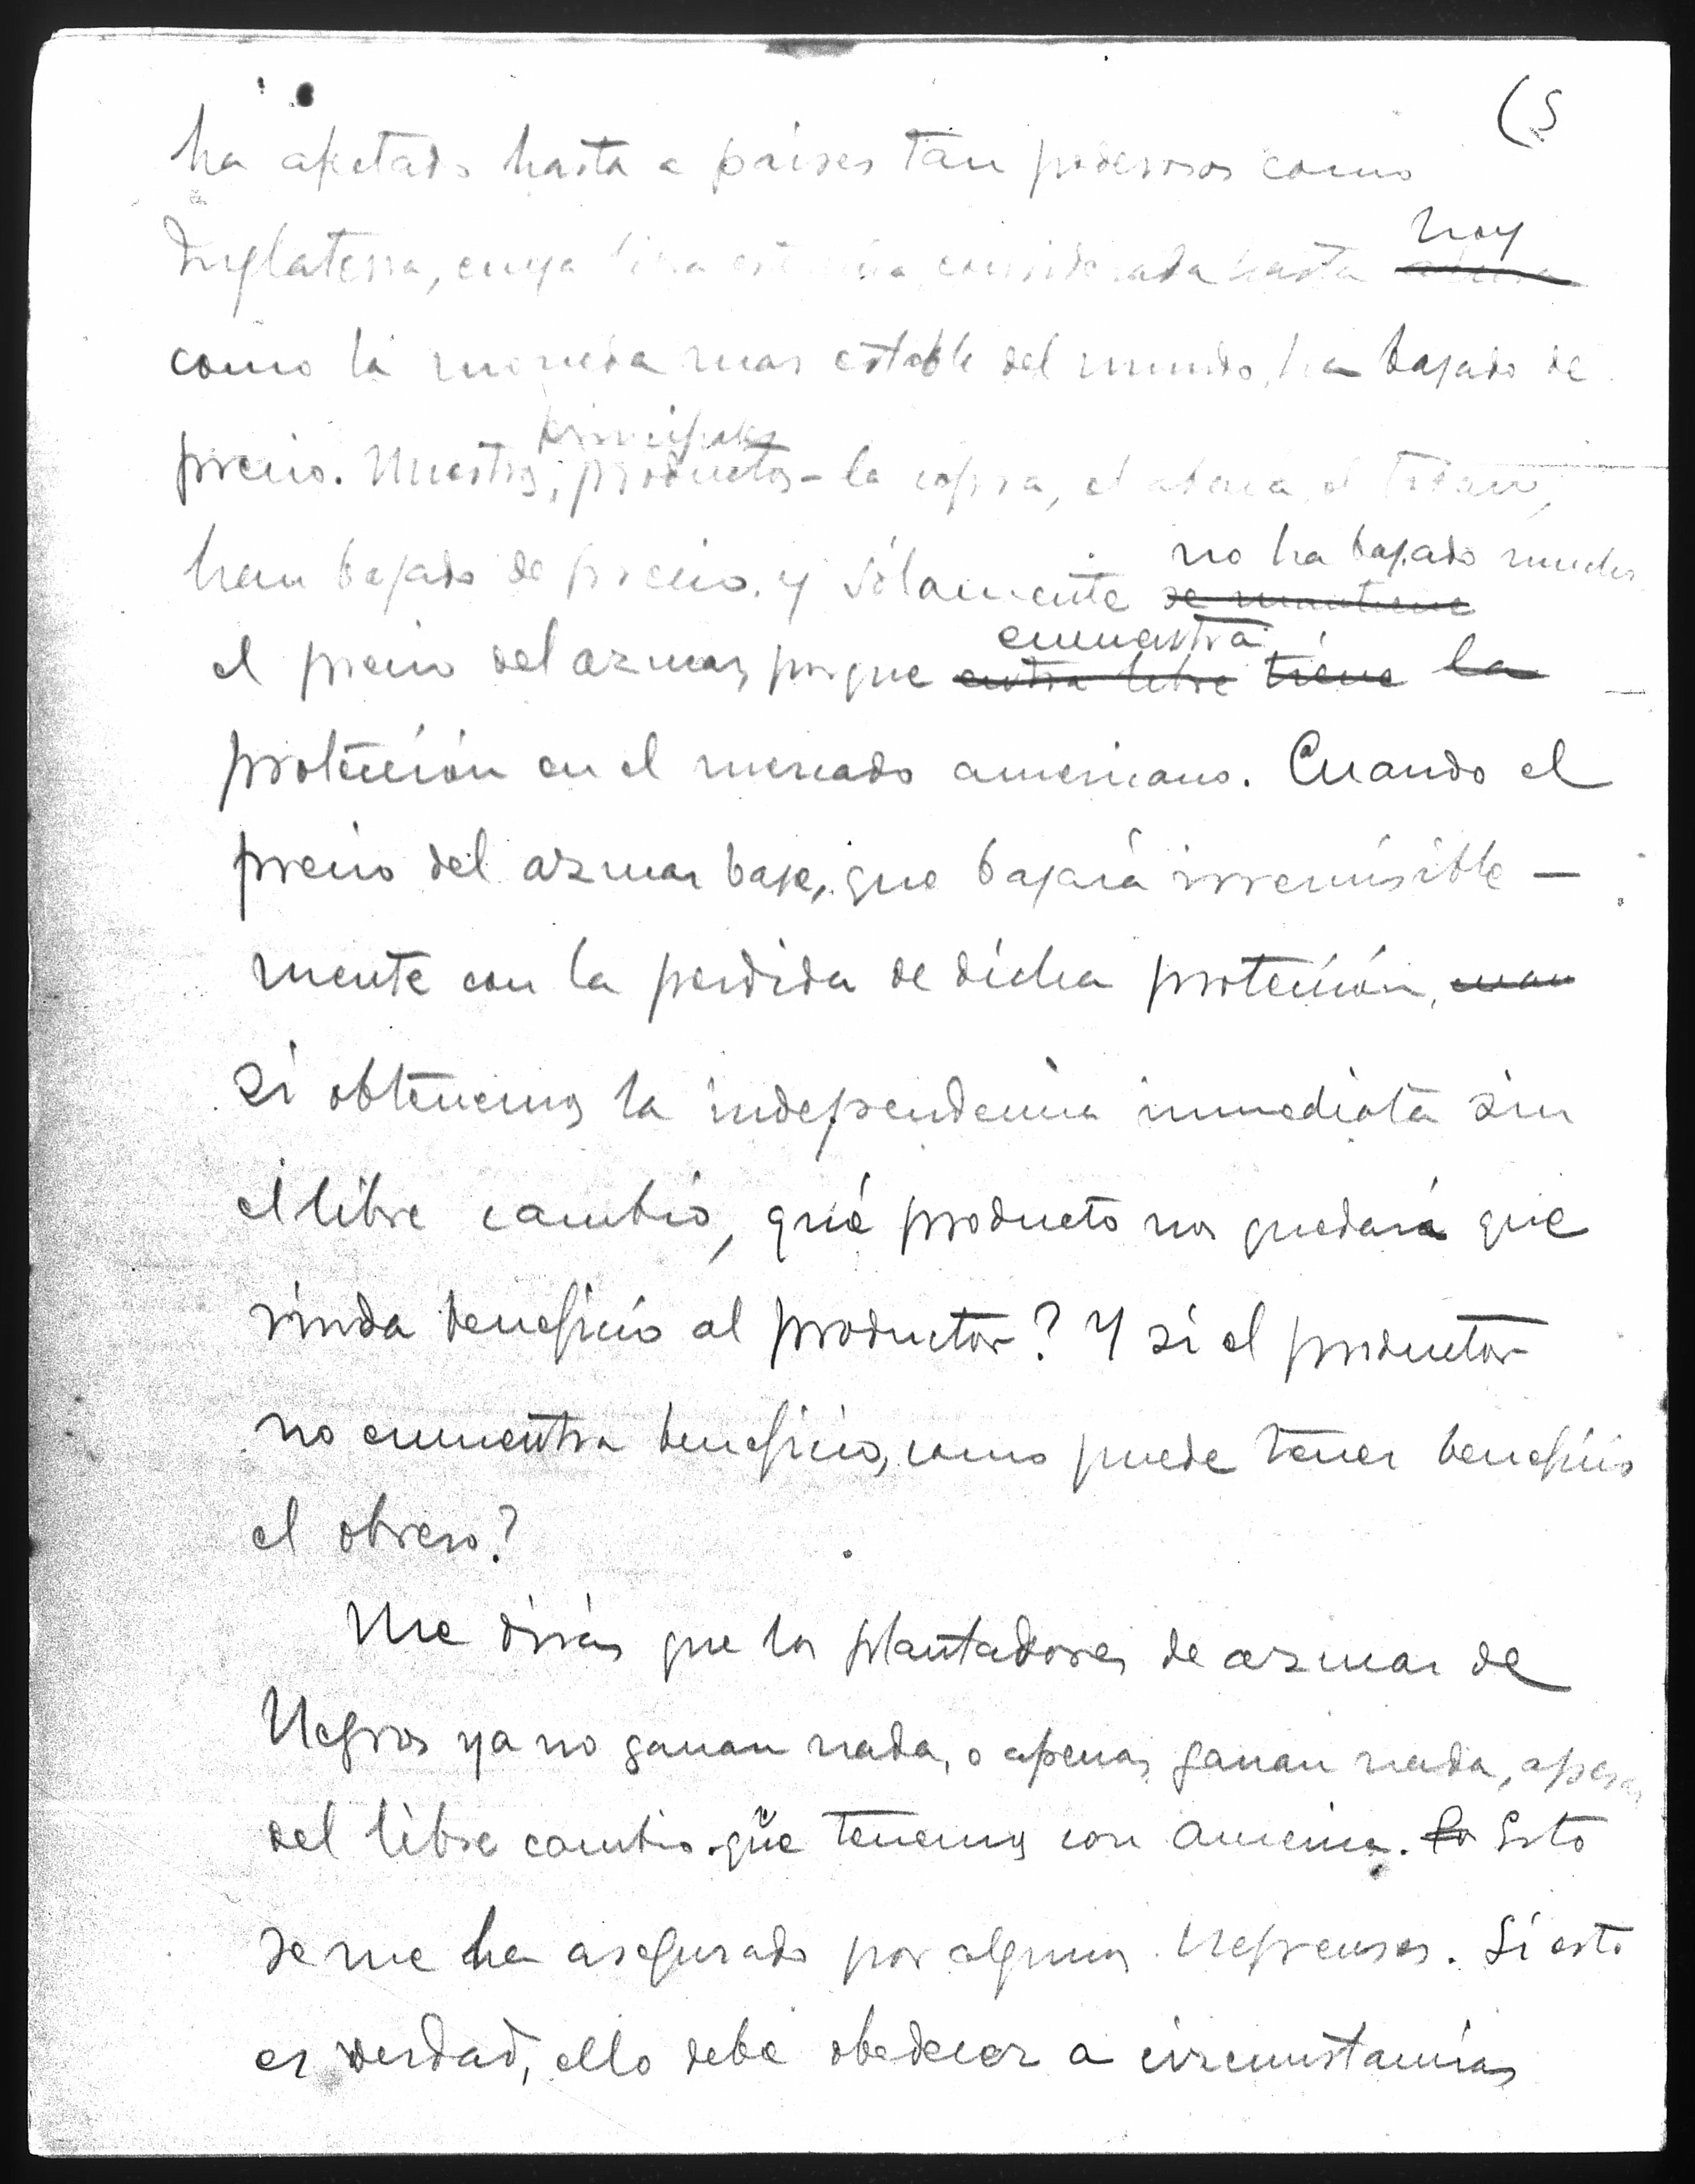 (5
ha afectado hasta a paises tan poderosos como
Inglaterra, cuya libra esterlina, considerada hasta hoy
como la moneda mas estable del mundo, ha bajado de
precio. Nuestros principales productos - la copra, el abacá, el tabaco,
han bajado de precio. y sólamente no ha bajado mucho
se mantiene
el precio del azucar, porque encuentra
entra libre tiene la
protección en el mercado americano. Cuando el
precio del azucar baje, que bajará irremisible-
mente con la perdida de dicha protección, cuan
si obtenemos la independencia inmediata sin
el libre cambio, qué producto nos quedará que
rinda beneficio al productor? Y si el productor
no encuentra beneficio, como puede tener beneficio
el obrero?
Me dirán que los plantadores de azucar de
Negros ya no ganan nada, o apenas ganan nada, apesar
del libre cambio que tenemos con America. Esto
se me ha asegurado por algunos Negrenses. Si esto
es verdad, ello debe obedecer a circunstancias